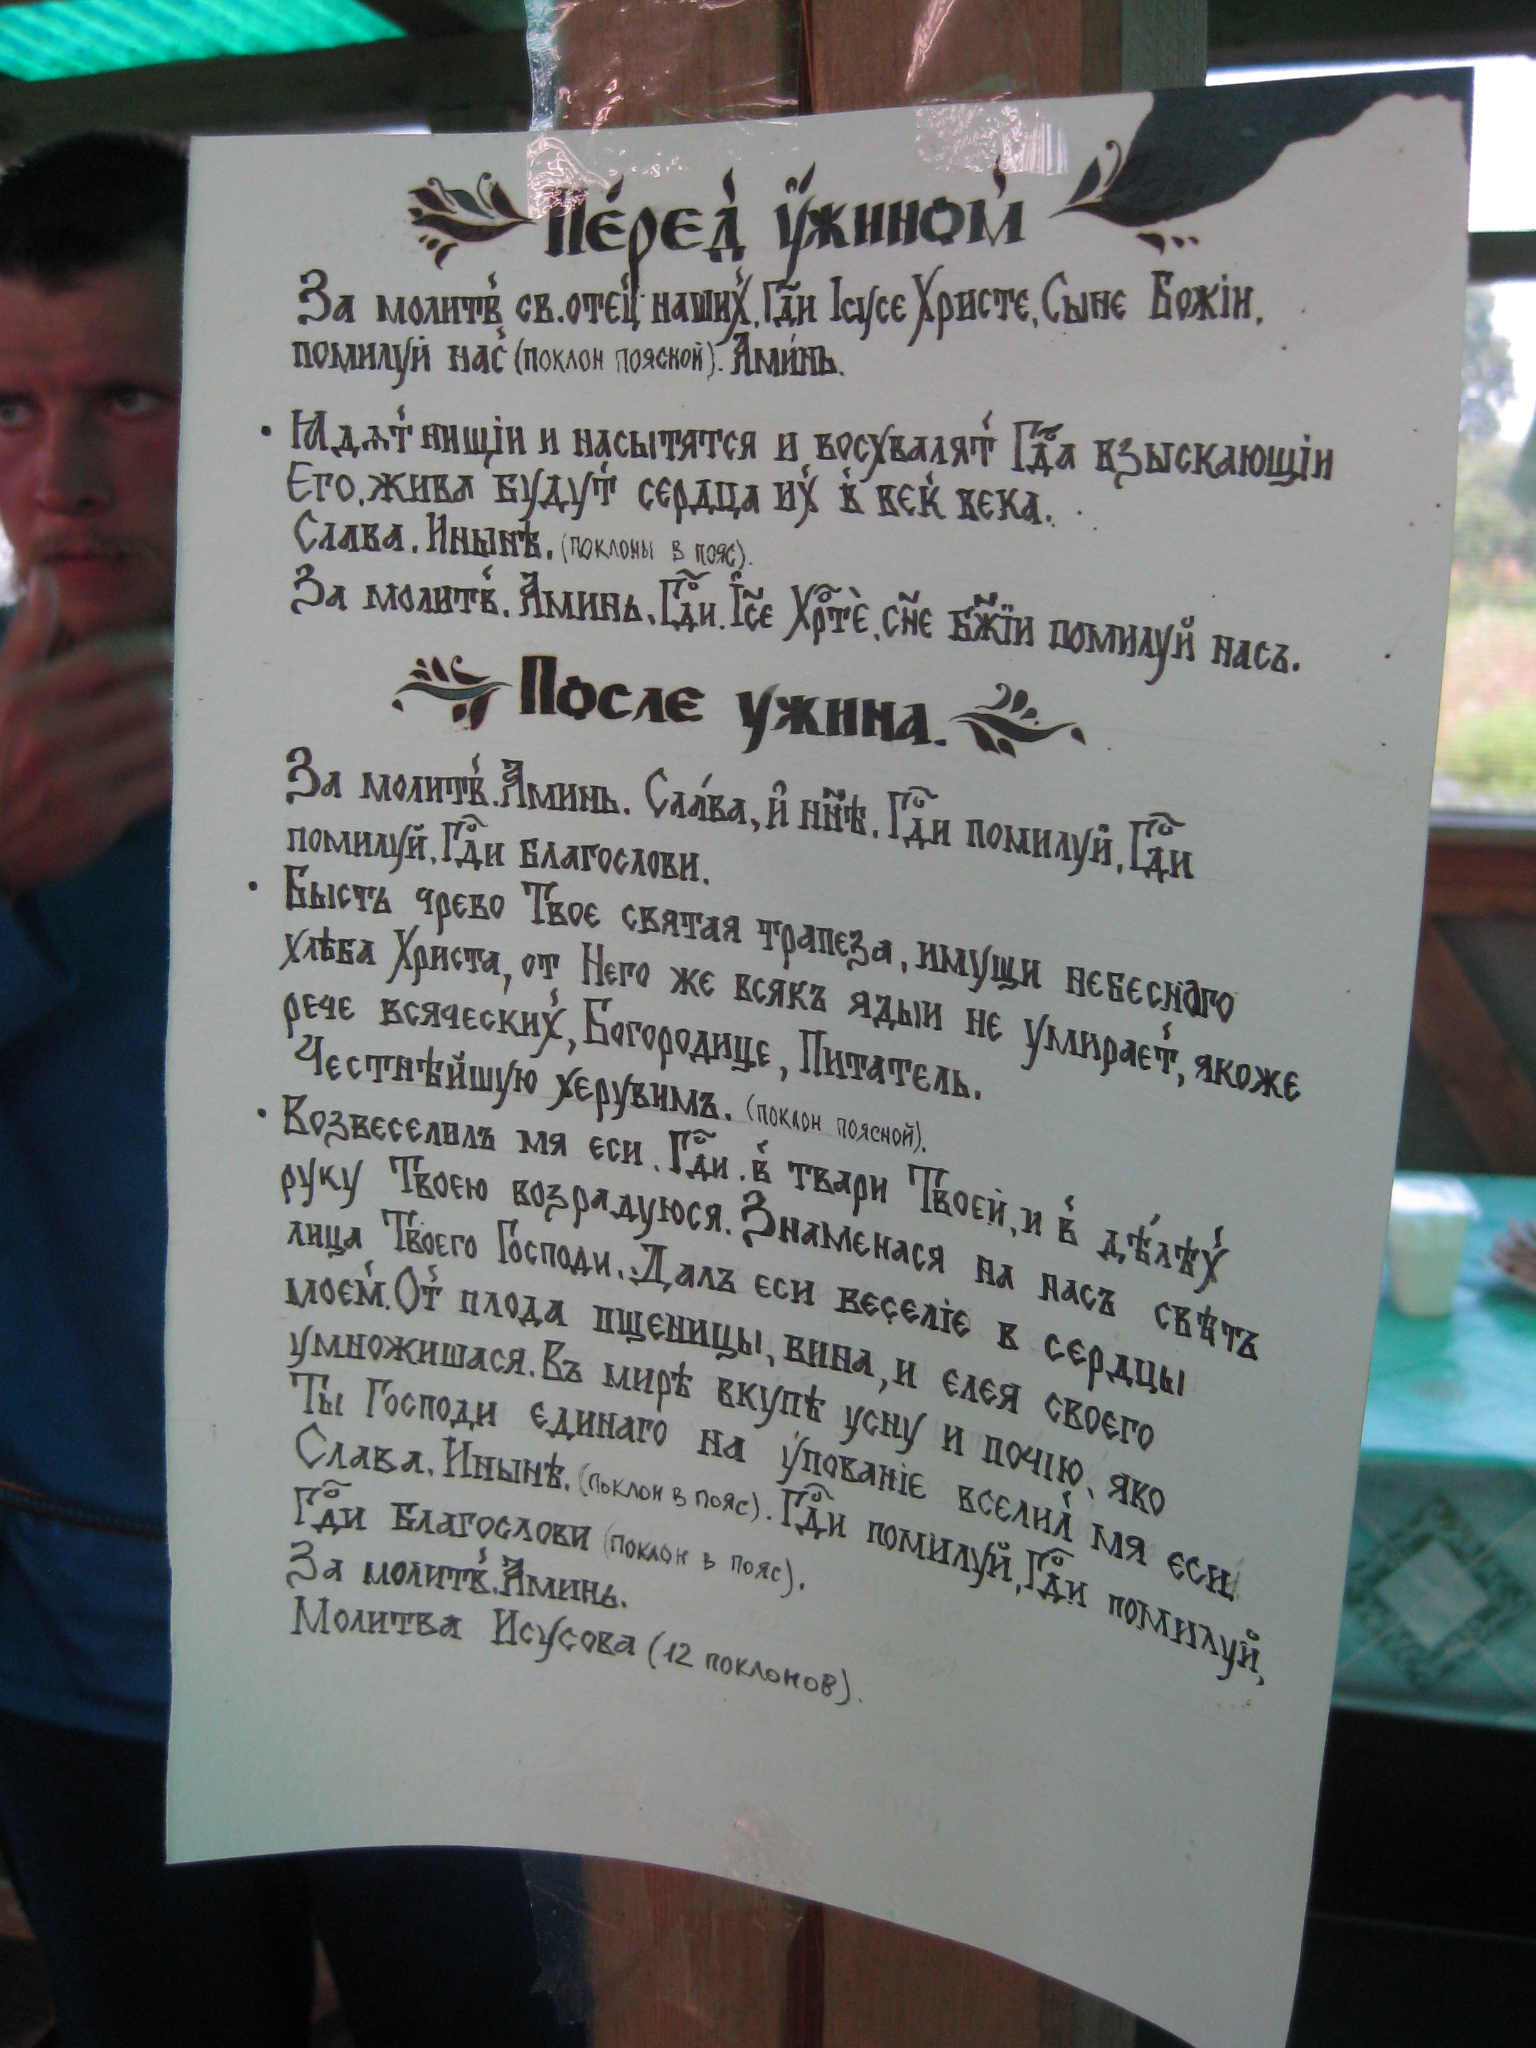 Пе́ред̾ у́жином̾
За молитв̾ св. отец̾ наших̾, Гдⷭ҇и Ісусе Христе, Сыне Божіи,
помилуй нас̾ (поклон поясной). Ами́нь.
• Ꙗдѧт̾ нищіи и насытятся и восхвалят̾ Гдⷭ҇а взыскающіи
Его, жива будут̾ сердца их̾ в̾ век̾ века.
Слава. Инынѣ. (поклоны в пояс).
За молитв̾. Аминь. Гдⷭ҇и. Іс҃е Хрⷭ҇тѐ, сн҃е бж҃їи помилуй насъ.
После ужина.
За молитв̾. Аминь. Сла́ва, и҆ нн҃ѣ. Гдⷭ҇и помилуй, Гдⷭ҇и
помилуй, Гдⷭ҇и благослови.
• Бысть чрево Твое святая трапеза, имущи небеснаго
хлѣба Христа, от Него же всякъ ядыи не умирает̾, якоже
рече всяческих̾, Богородице, Питатель.
Честнѣйшую херувимъ. (поклон поясной).
• Возвеселилъ мя еси, Гдⷭ҇и. в̾ твари Твоей, и в̾ дѣ́лѣх̾
руку Твоею возрадуюся. Знаменася на насъ свѣтъ
лица Твоего Господи. Далъ еси веселіе в сердцы
моем̾. От̾ плода пшеницы, вина, и елея своего
умножишася. Въ мирѣ вкупѣ усну и почію, яко
Ты Господи единаго на упованіе вселил̾ мя еси
Слава. Инынѣ. (поклон в пояс). Гдⷭ҇и помилуй, Гдⷭ҇и помилуй,
Гдⷭ҇и благослови (поклон в пояс).
За молитв̾. Аминь.
Молитва Исусова (12 поклонов).